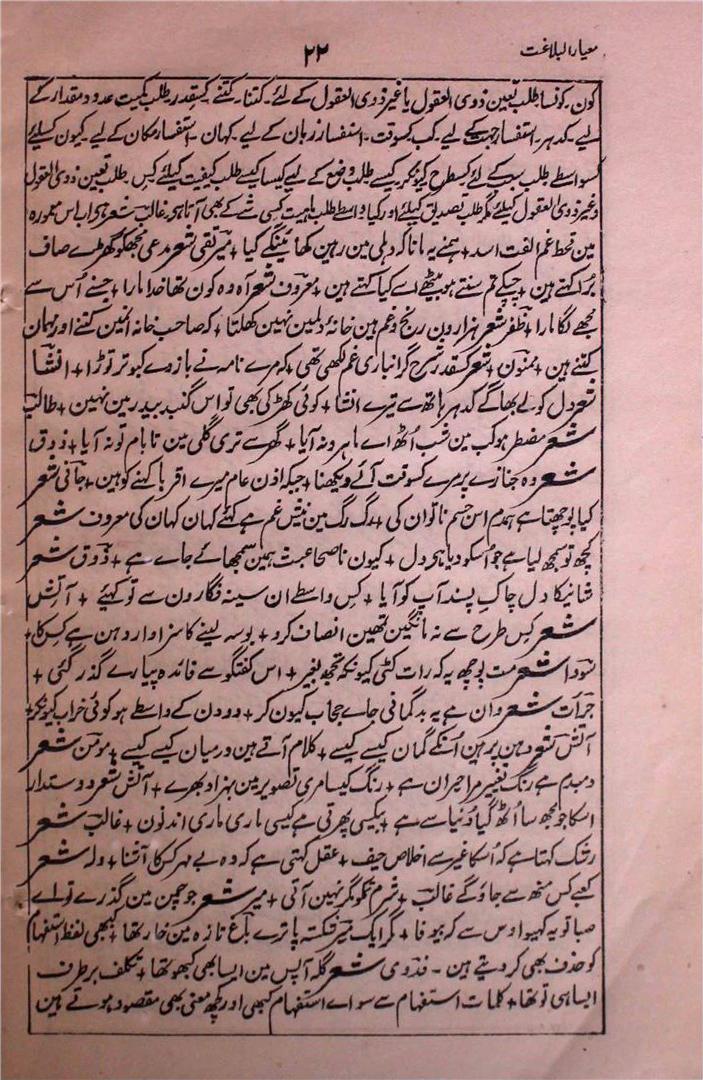 معیار البلاغت
۲۲
کون۔ کونسا طلب تعین ذوی العقول یا غیر ذوی العقول کے لئے۔ کتنا۔ کتنے کیقدر طلب کمیت عدد و مقدار کے
لیے۔ کدہر۔ استفسار جہت کے لیے۔ کب کسوقت۔ استفسار زبان کے لیے۔ کہان۔ استفسار مکان کے لیے۔ کیون کیلئے
کسواسطے طلب سبب کے لئے کسطرح کیونکر کیسے طلب وضع کے لیے کیسا کیسے طلب کیفیت کیلئے کس طلب تعین ذوی العقول
وغیر ذوی العقول کیلئے مگر طلب تصدیق کیلئے اور کیا واسطے طلب ماہیت کسی شے کے بھی آتا ہے۔ غالب شعر ہے اب اس معمورہ
مین قحط غم الفت اسد + ہمنے یہ مانا کہ دہلی مین رہین کھائینگے کیا + میر تقی شعر مدعی مجھکو کھڑے صاف
برا کہتے ہین + چپکے تم سنتے ہو بیٹھے اسے کیا کہتے ہین + معروف شعر آہ وہ کون تھا خدا مارا + جسنے اُس سے
مجھے لگا مارا + ظفر شعر ہزارون رنج و غم ہین خانۂ دلمین نہین کھلتا + کہ صاحب خانہ ائین کتنے اور مہمان
کتنے ہین + ممنون + شعر کسقدر شرح گرانباری غم لکھی تھی + کہ مرے نامہ نے بازوے کبوتر توڑا + انشا
شعر دل کو لے بھاگے کدہر ہاتھ سے تیرے انشا + کوئی کھڑکی بھی تو اس گنبد بیدر مین نہین + طالب
شعر مضطر ہو کب مین شب اُٹھ اے ماہرو نہ آیا + گھر سے تری گلی مین تا بام تو نہ آیا + ذوق
شعر وہ جنازے پر مرے کسوقت آئے دیکھنا + جبکہ اذن عام میرے اقربا کہنے کو ہین + جآنی شعر
کیا پوچھتا ہے ہمدم اس جسم ناتوان کی + رگ رگ مین نیش غم ہے کہئے کہان کہان کی معروف شعر
کچھ تو سمجھ لیا ہے جو اُسکو دیا ہے دل + کیون ناصحا عبث ہمین سمجھائے جاے ہے + ذوق شعر
شانیکا دل چاک پسند آپ کو آیا + کس واسطے ان سینہ فگارون سے تو کہئے + آتش
شعر کس طرح سے نہ مانگین تمھین انصاف کرو + بوسہ لینے کا سزاوار دہن ہے کس کا +
سودا شعر مت پوچھ یہ کہ رات کٹی کیونکہ تجھ بغیر + اس گفتگو سے فائدہ پیارے گذر گئی +
جرأت شعر وان ہے یہ بدگمانی جاے حجاب کیون کر + دو دن کے واسطے ہو کوئی خراب کیونکر +
آتش شعر دہن پر ہین اُنکے گمان کیسے کیسے + کلام آتے ہین درمیان کیسے کیسے + مومن شعر
دمبدم ہے رنگ تغییر مرا حیران ہے + رنگ کیسا مری تصویر مین بہزاد بھرے + آتش شعر دوستدار
اسکا جو مجھ سا اُٹھ گیا دُنیا سے ہے + بیکسی پھرتی ہے کیسی ماری ماری اندنون + غالب شعر
رشک کہتا ہے کہ اُسکا غیر سے اخلاص حیف + عقل کہتی ہے کہ وہ بے مہر کس کا آشنا + ولہ شعر
کعبے کس منھ سے جاؤگے غالب + شرم تمکو مگر نہین آتی + میر شعر جو چمن مین گذرے تو اے
صبا تو یہ کہیو اوس سے کہ بیوفا + مگر ایک میر شکستہ پا ترے باغ تازہ مین خار تھا + کبھی لفظ استفہام
کو حذف بھی کر دیتے ہین۔ فدوی شعر گلہ آپس مین ایسا بھی کبھو تھا + تکلف بر طرف
ایسا ہی تو تھا + کلمات استفہام سے سواے استفہام کبھی اور کچھ معنی بھی مقصود ہوتے ہین